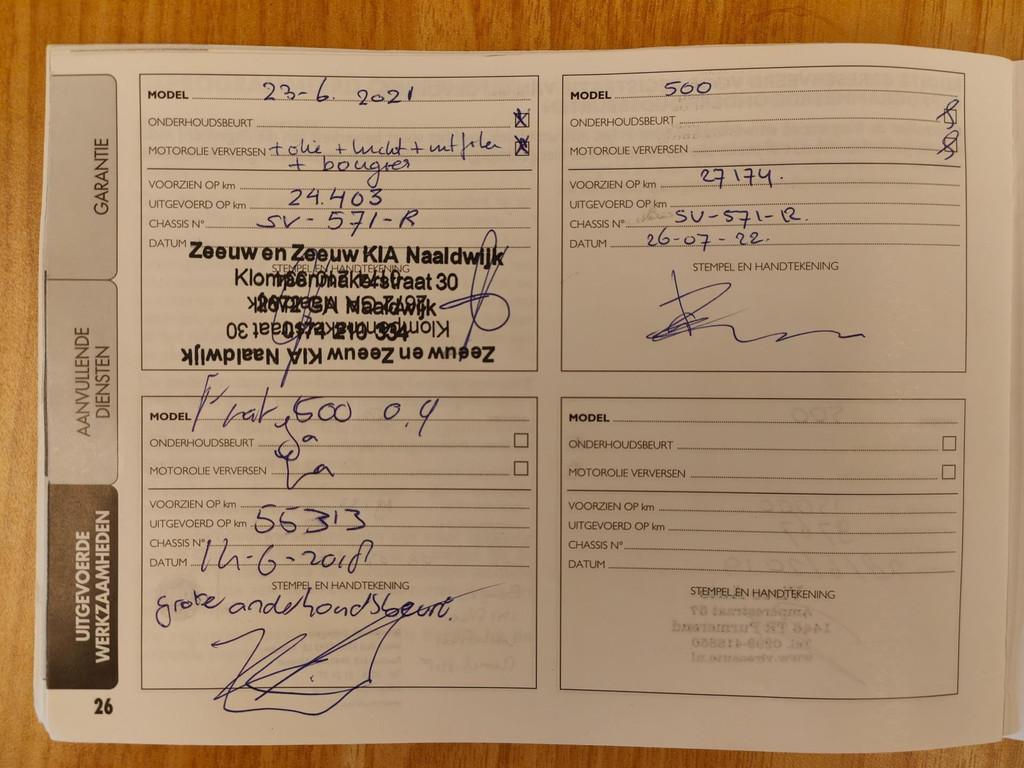 GARANTIE
AANVULLENDE
DIENSTEN
UITGEVOERDE
WERKZAAMHEDEN
26
MODEL 23-6. 2021
ONDERHOUDSBEURT X
MOTOROLIE VERVERSEN + olie + lucht + int filter X
+ bougies
VOORZIEN OP km
UITGEVOERD OP km 24.403
CHASSIS N° SV-571-R
DATUM
Zeeuw en Zeeuw KIA Naaldwijk
STEMPEL EN HANDTEKENING
Klompenmakerstraat 30
2672 GA Naaldwijk
0174 210 334
Klompenmakerstraat 30
Zeeuw en Zeeuw KIA Naaldwijk
MODEL 500
ONDERHOUDSBEURT
MOTOROLIE VERVERSEN
VOORZIEN OP km 27174.
UITGEVOERD OP km
CHASSIS N° SV-571-R.
DATUM 26-07-22.
STEMPEL EN HANDTEKENING
MODEL Fiat 500 0,9
ONDERHOUDSBEURT Ja
MOTOROLIE VERVERSEN Ja
VOORZIEN OP km
UITGEVOERD OP km 56313
CHASSIS N°
DATUM 14-6-2018
STEMPEL EN HANDTEKENING
grote onderhoudsbeurt.
MODEL
ONDERHOUDSBEURT
MOTOROLIE VERVERSEN
VOORZIEN OP km
UITGEVOERD OP km
CHASSIS N°
DATUM
STEMPEL EN HANDTEKENING